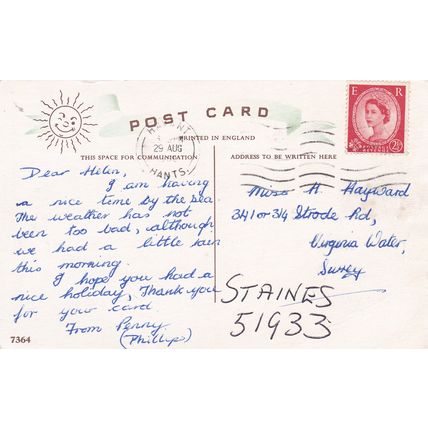 POST CARD
PRINTED IN ENGLAND
HAVANT
29 AUG
HANTS.
E R
2½
THIS SPACE FOR COMMUNICATION
ADDRESS TO BE WRITTEN HERE
Dear Helen,
I am having
a nice time by the sea.
The weather has not
been too bad, although
we had a little rain
this morning.
I hope you had a
nice holiday, Thank you
for your card.
From Penny
(Phillips)
Miss H. Hayward
341 or 314 Strode Rd,
Virginia Water,
Surrey
STAINES
51933
7364